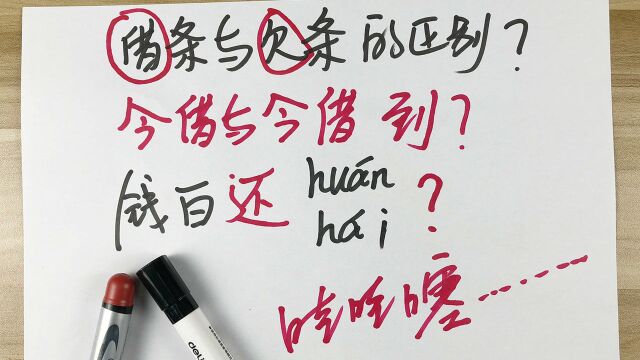 借条与欠条的区别？
今借与今借到？
钱百还 huán hái？
哇哇噻……
deli